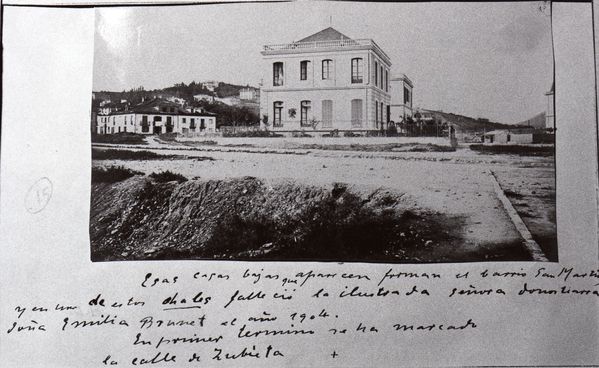 15
Esas casas bajas que aparecen forman el barrio San Martín
y en uno de estos chales falleció la ilustrada señora donostiarra
doña Emilia Brunet el año 1904.
En primer termino se ha marcado
la calle de Zubieta +